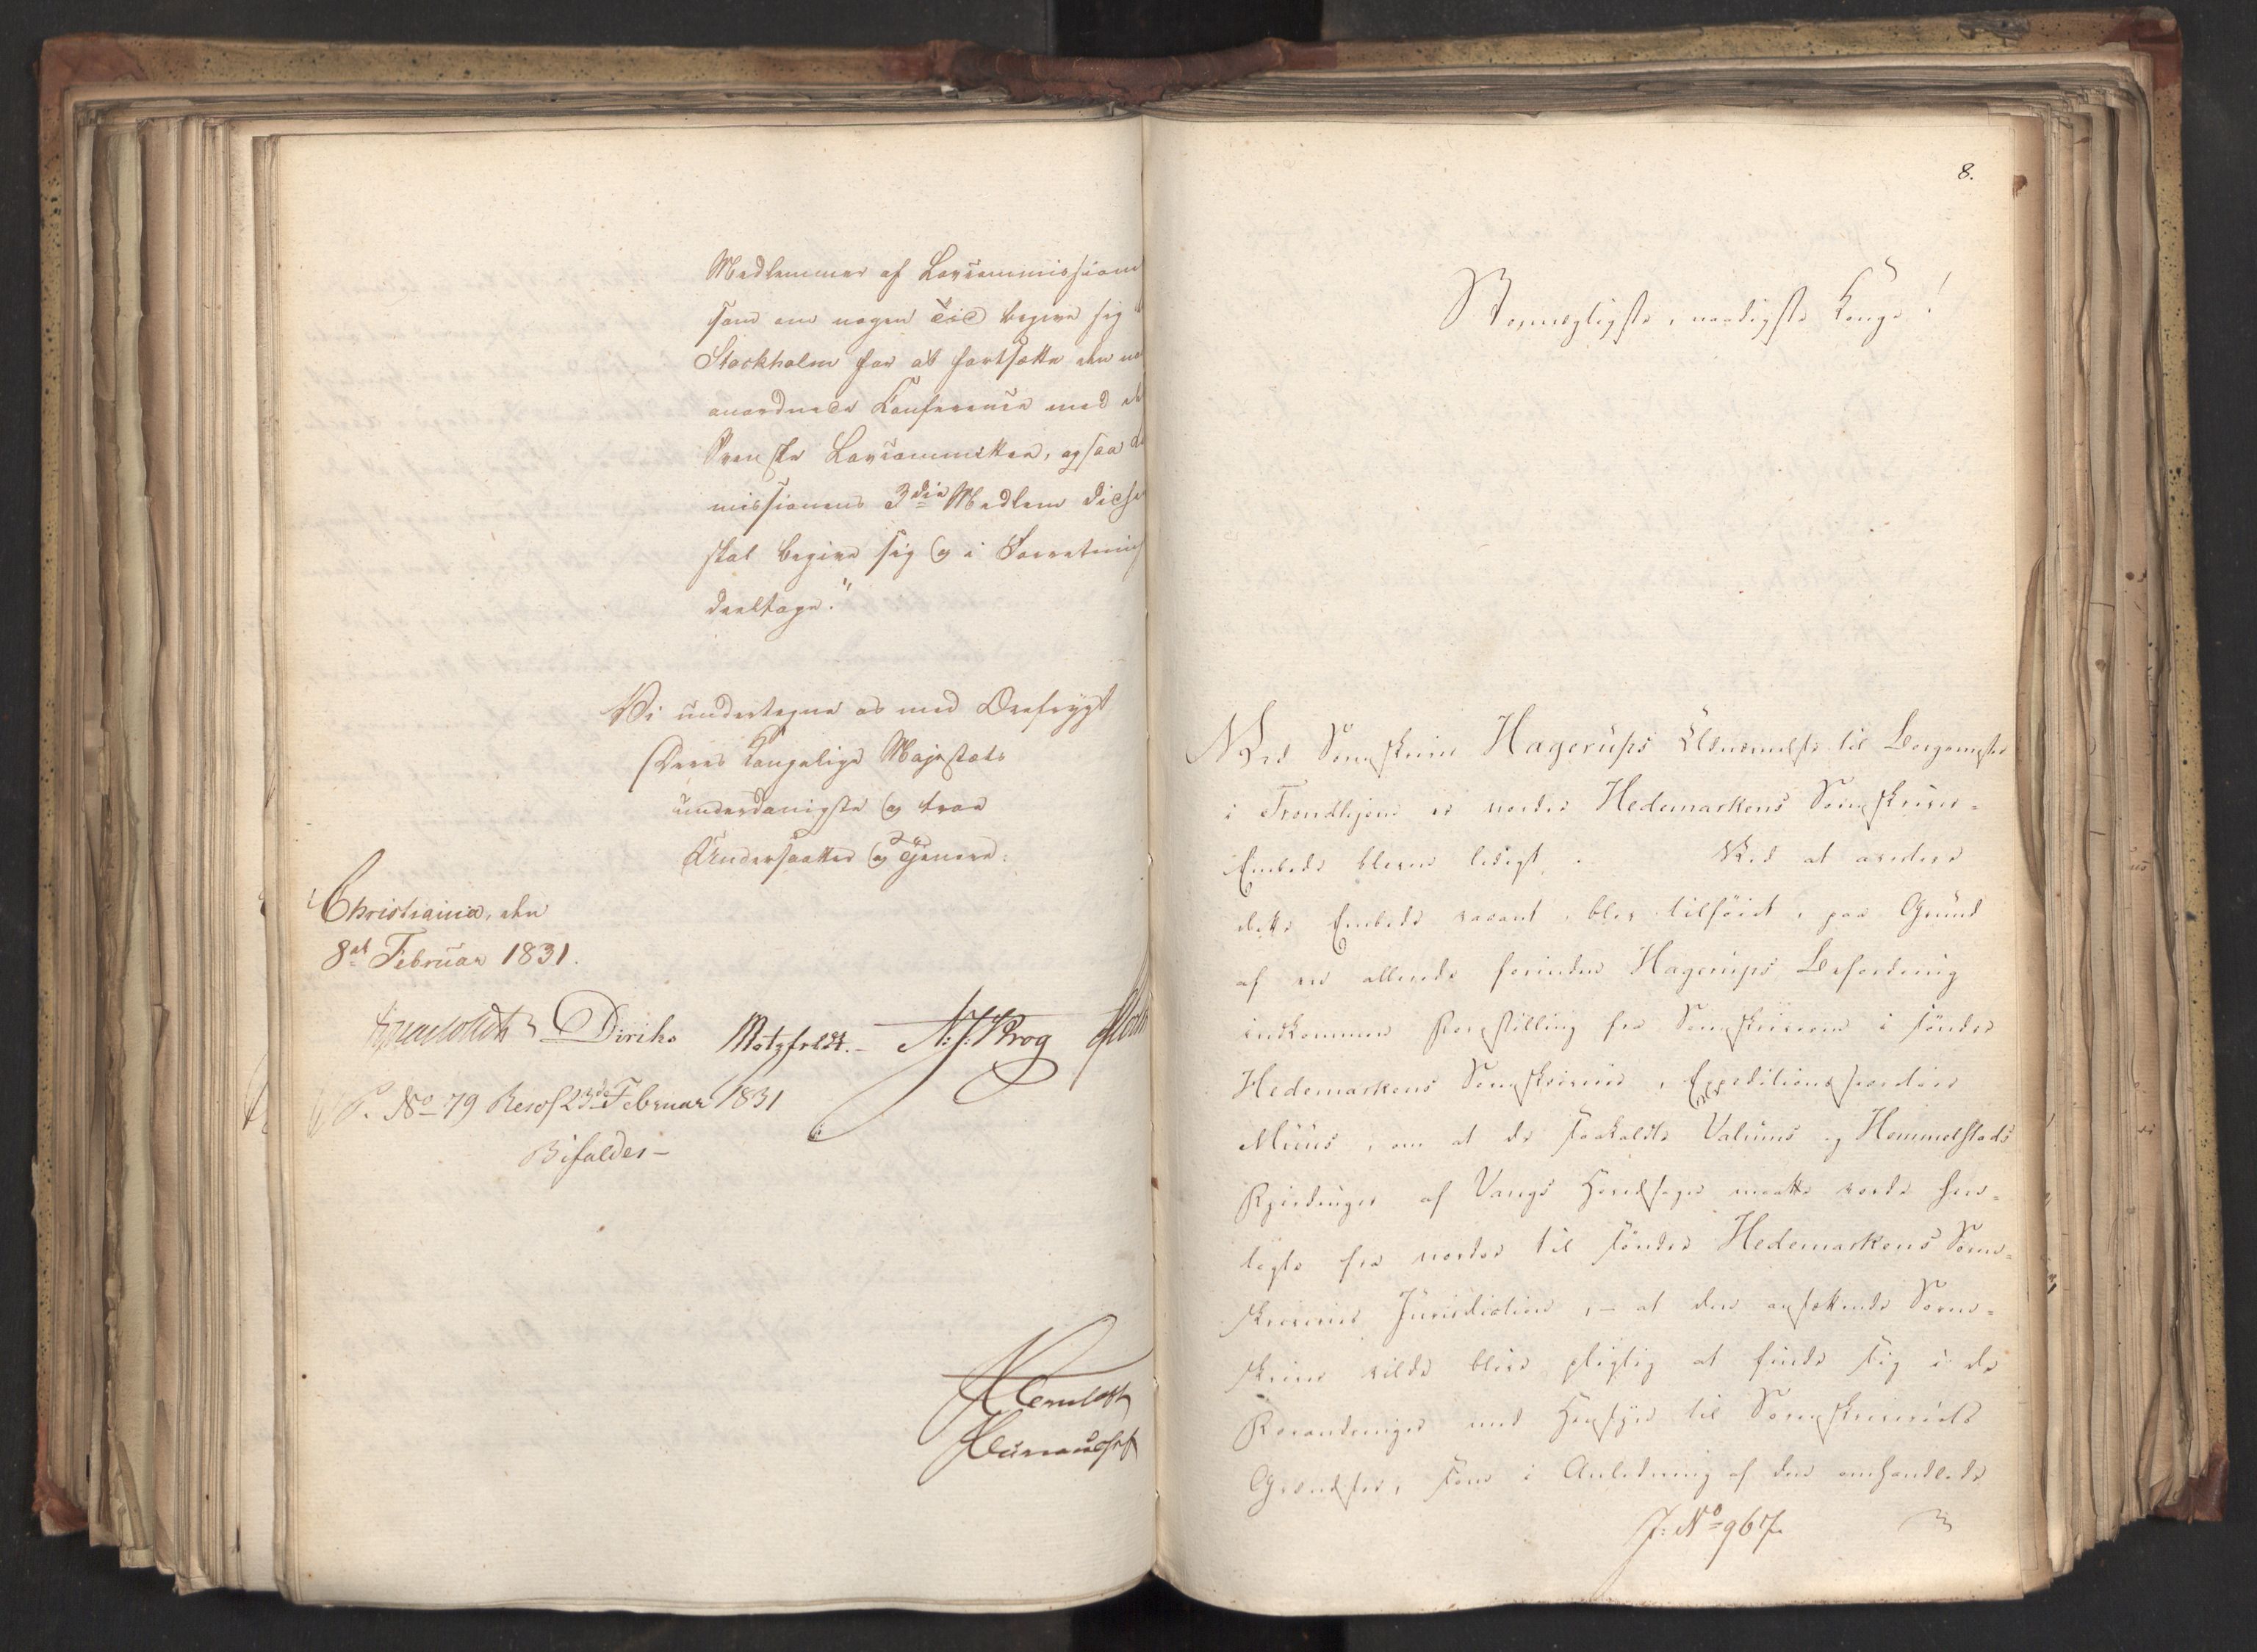 Medlemmer af Lovcommissionen
som om nogen Tid begive sig
Stockholm for at fortsætte den
anordnede Conference med
Svenske Lovcommittee, ogsaa
missionens 3die Medlem
skal begive sig og i
deeltage."
Vi undertegne os med Ærefrygt
Deres Kongelige Majestæts
underdanigste og troe
Undersaatter og Tjenere.
Christiania, den
8de Februar 1831.
Diriks Motzfeldt. N: J: Krog
P. No 79 Resol 23de Februar 1831
Bifaldes-
8.
Stormægtigste, naadigste Konge!
Ved Sorenskriver Hagerups Udnævnelse til Borgemester
i Trondhjem er nordre Hedemarkens Sorenskriver-
Embede bleven ledigt. Ved at ansees
dette Embede vacant, blev tilföiet, paa Grund
af en allerede forinden Hagerups Befordring
indkommen Forestilling fra Sorenskriveren i söndre
Hedemarkens Sorenskriverie, Expeditionssecretair
Müüs, om at de saakaldte Valums og Hommelstads
Fjerdinger af Vangs Hovedsogn maatte vorde hen-
lagte fra nordre til söndre Hedemarkens Soren-
skriveries Jurisdiction, - at den ansættende Soren-
skriver vilde blive pligtig at finde sig i de
Forandringer med Hensyn til Sorenskriveriets
Grændser, som i Anledning af den omhandlede
J: No 967.